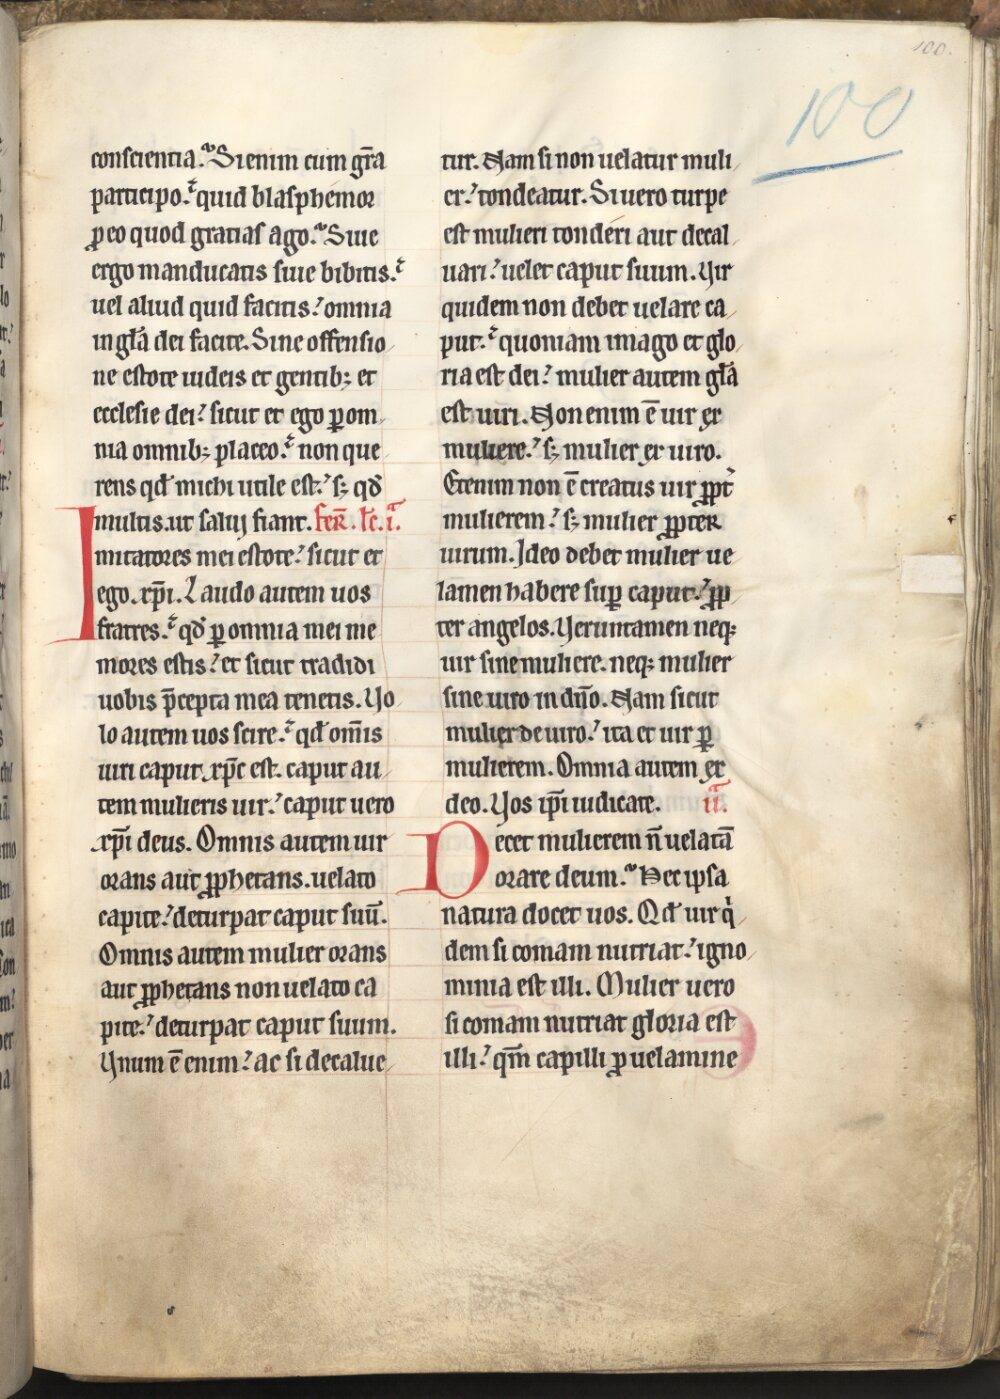 100.
100
conscientia. Si enim cum gr̄a
participo. quid blasphemor
ꝑ eo quod gratias ago. Siue
ergo manducatis siue bibitis.
uel aliud quid facitis. omnia
in gl̄a dei facite. Sine offensio
ne estote iudeis et gentib; et
ecclesie dei. sicut et ego ꝑ om
nia omnib; placeo. non que
rens qd̄ michi utile est. s; qd̄
multis. ut salui fiant. fer̄. lc̄. i.
Imitatores mei estote. sicut et
ego. xp̄i. Laudo autem uos
fratres. qd̄ ꝑ omnia mei me
mores estis. et sicut tradidi
uobis p̄cepta mea tenetis. Uo
lo autem uos scire. qd̄ om̄is
uiri caput. xp̄c est. caput au
tem mulieris uir. caput uero
xp̄i deus. Omnis autem uir
orans aut ꝓphetans. uelato
capite. deturpat caput suū.
Omnis autem mulier orans
aut ꝓphetans non uelato ca
pite. deturpat caput suum.
Unum ē enim. ac si decalue
tur. Nam si non uelatur muli
er. tondeatur. Si uero turpe
est mulieri tonderi aut decal
uari. uelet caput suum. Uir
quidem non debet uelare ca
put. quoniam imago et glo
ria est dei. mulier autem gl̄a
est uiri. Non enim ē uir ex
muliere. s; mulier ex uiro.
Etenim non ē creatus uir ꝓpt̄
mulierem. s; mulier ꝓpter
uirum. Ideo debet mulier ue
lamen habere suꝑ caput. ꝓp
ter angelos. Ueruntamen neq;
uir sine muliere. neq; mulier
sine uiro in dn̄o. Nam sicut
mulier de uiro. ita et uir ꝑ
mulierem. Omnia autem ex
deo. Uos ip̄i iudicate. ii.
Decet mulierem n̄ uelatā
orare deum. Nec ipsa
natura docet uos. Qd̄ uir q̇
dem si comam nutriat. igno
minia est illi. Mulier uero
si comam nutriat gloria est
illi. qm̄ capilli ꝑ uelamine